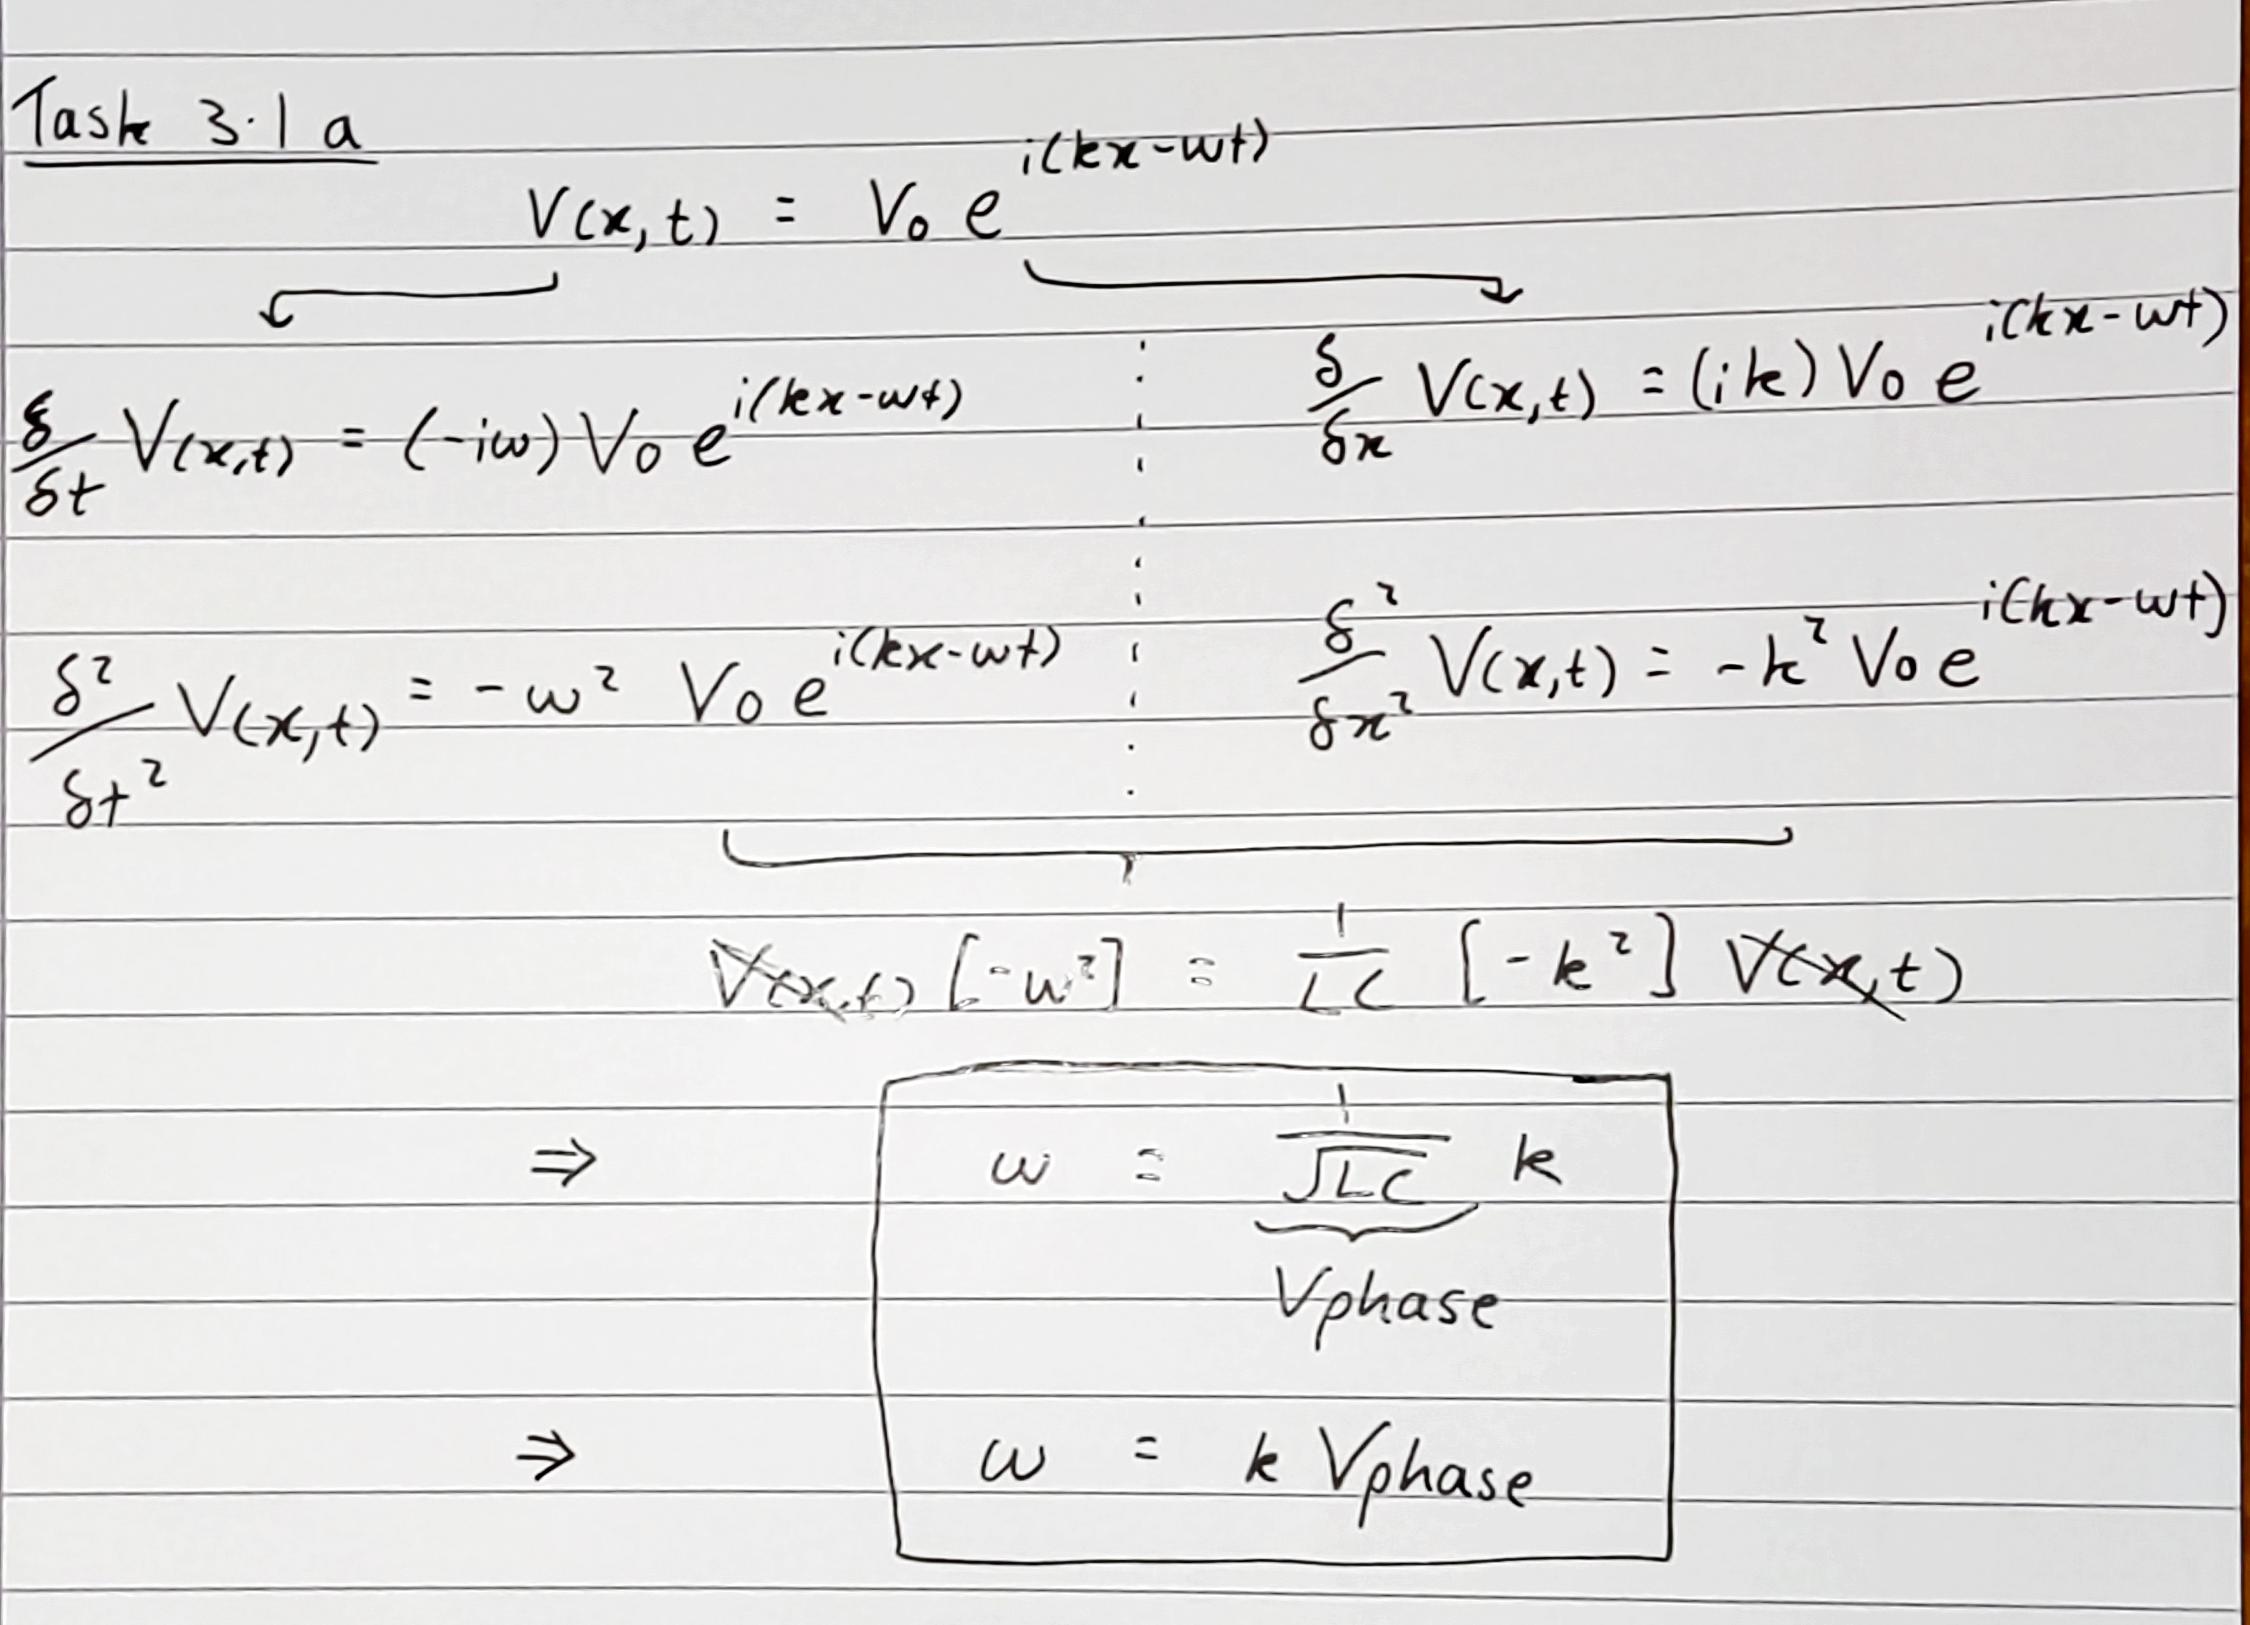 Task 3.1 a
V(x,t) = V₀ e^{i(kx-ωt)}
δ/δt V(x,t) = (-iω) V₀ e^{i(kx-ωt)}
δ/δx V(x,t) = (ik) V₀ e^{i(kx-ωt)}
δ²/δt² V(x,t) = -ω² V₀ e^{i(kx-ωt)}
δ²/δx² V(x,t) = -k² V₀ e^{i(kx-ωt)}
V(x,t) [-ω²] = 1/LC [-k²] V(x,t)
⇒ ω = 1/√LC k
Vphase
⇒ ω = k Vphase